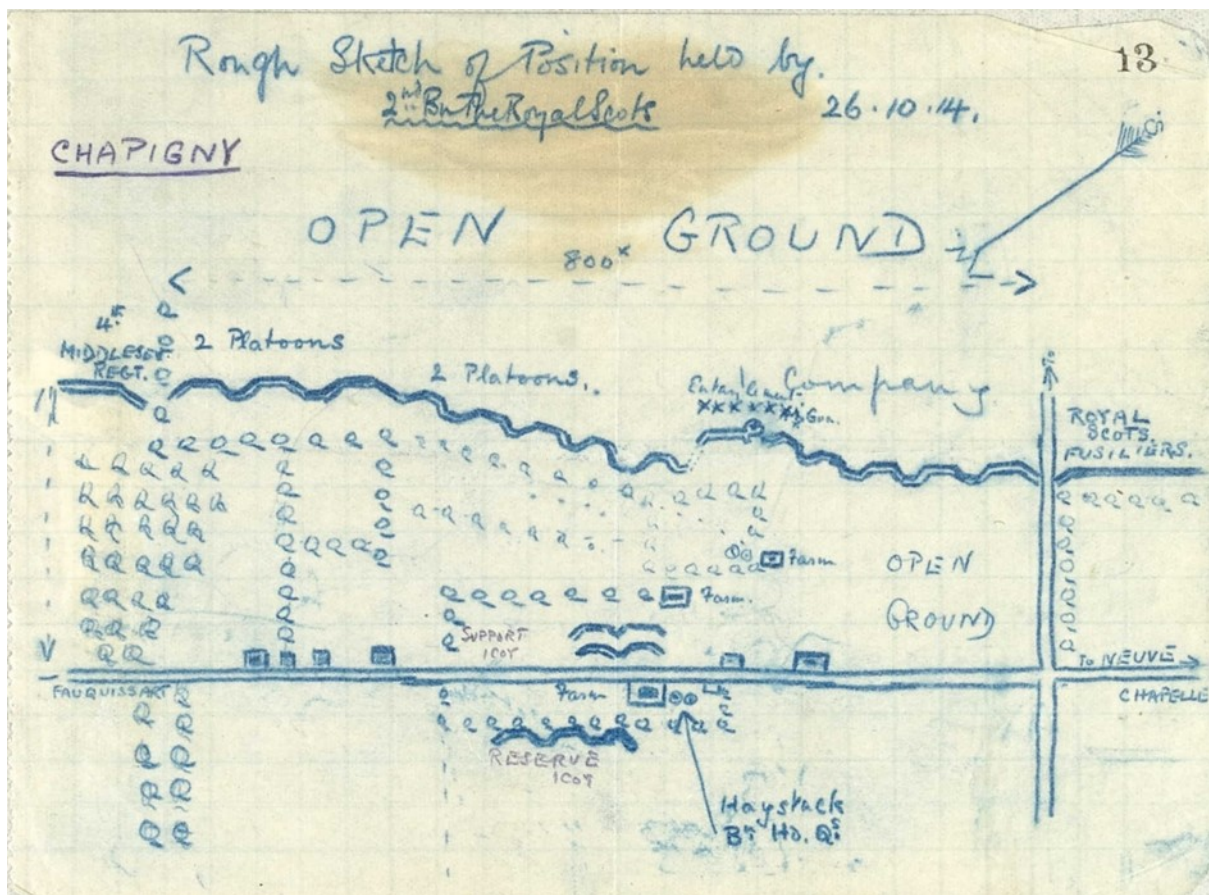 Rough Sketch of Position held by.
13
2nd Bn The Royal Scots
26.10.14.
CHAPIGNY
OPEN GROUND
800x
4th
MIDDLESEX
REGT.
2 Platoons
2 Platoons.
Company
Entanglement
Gun.
To
ROYAL
SCOTS.
FUSILIERS.
Farm
OPEN
GROUND
Farm.
SUPPORT
1 COY
To NEUVE
CHAPELLE
FAUQUISSART
Farm
RESERVE
1 COY
Haystack
Bn HD. Qrs